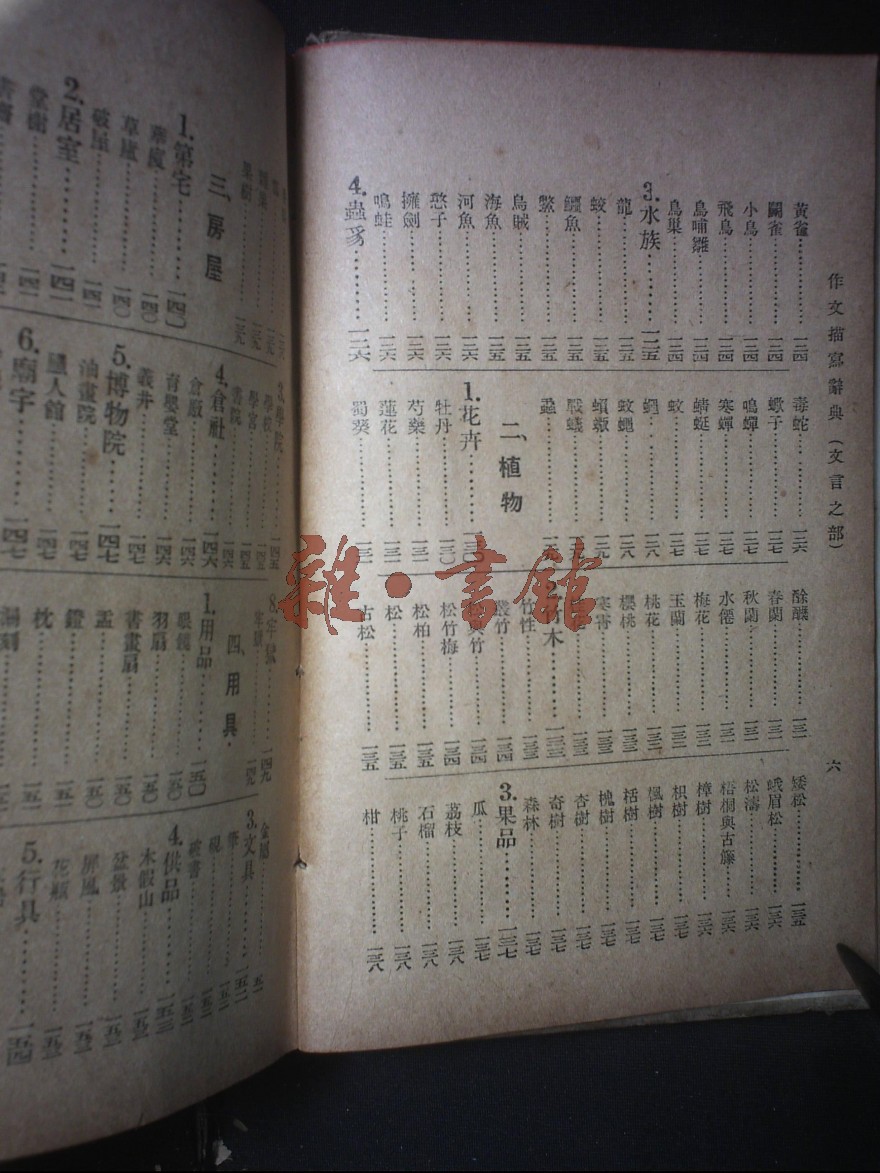 作文描寫辭典（文言之部）
六
黃雀……一二四
鬭雀……一二四
小鳥……一二四
飛鳥……一二四
鳥哺雛……一二四
鳥巢……一二四
3.水族……一二五
龍……一二五
蛟……一二五
鱷魚……一二五
鱉……一二五
烏賊……一二五
海魚……一二五
河魚……一二六
憨子……一二六
擁劍……一二六
鳴蛙……一二六
4.蟲豸……一二六
毒蛇……一二六
蠍子……一二七
鳴蟬……一二七
寒蟬……一二七
蜻蜓……一二七
蚊……一二七
蠅……一二八
蚊蠅……一二八
戰蟻……一二九
蟲
二、植物
1.花卉……一三〇
牡丹……一三〇
芍藥……一三一
蓮花……一三一
蜀葵……一三一
酴醾……一三一
春蘭……一三一
秋蘭……一三一
水僊……一三一
梅花……一三二
玉蘭……一三二
桃花……一三二
櫻桃……一三三
竹木……一三三
竹性……一三三
叢竹……一三四
松竹梅……一三四
松柏……一三五
松……一三五
古松……一三五
矮松……一三五
峨眉松……一三六
松濤……一三六
梧桐與古藤……一三六
樟樹……一三六
枳樹……一三七
楓樹……一三七
栝樹……一三七
槐樹……一三七
杏樹……一三七
奇樹……一三七
森林……一三七
3.果品……一三七
瓜……一三七
荔枝……一三八
石榴……一三八
桃子……一三八
柑……一三八
三、房屋
1.第宅……一四〇
華廈……一四〇
草廬……一四〇
破屋……一四一
2.居室……一四一
堂榭……一四一
3.學院……一四五
學校……一四五
學宮……一四五
書院……一四六
4.倉社……一四六
倉廒……一四六
育嬰堂……一四六
義井……一四七
5.博物院……一四七
油畫院……一四七
蠟人館……一四七
6.廟宇……一四七
8.牢獄……一四九
四、用具
1.用品……一五〇
眼鏡……一五〇
羽扇……一五〇
書畫扇……一五〇
盂……一五一
鐙……一五一
枕……一五一
3.文具……一五二
筆
硯
破書
4.供品……一五三
木假山
盆景
屏風
花瓶
5.行具……一五四
雜·書館